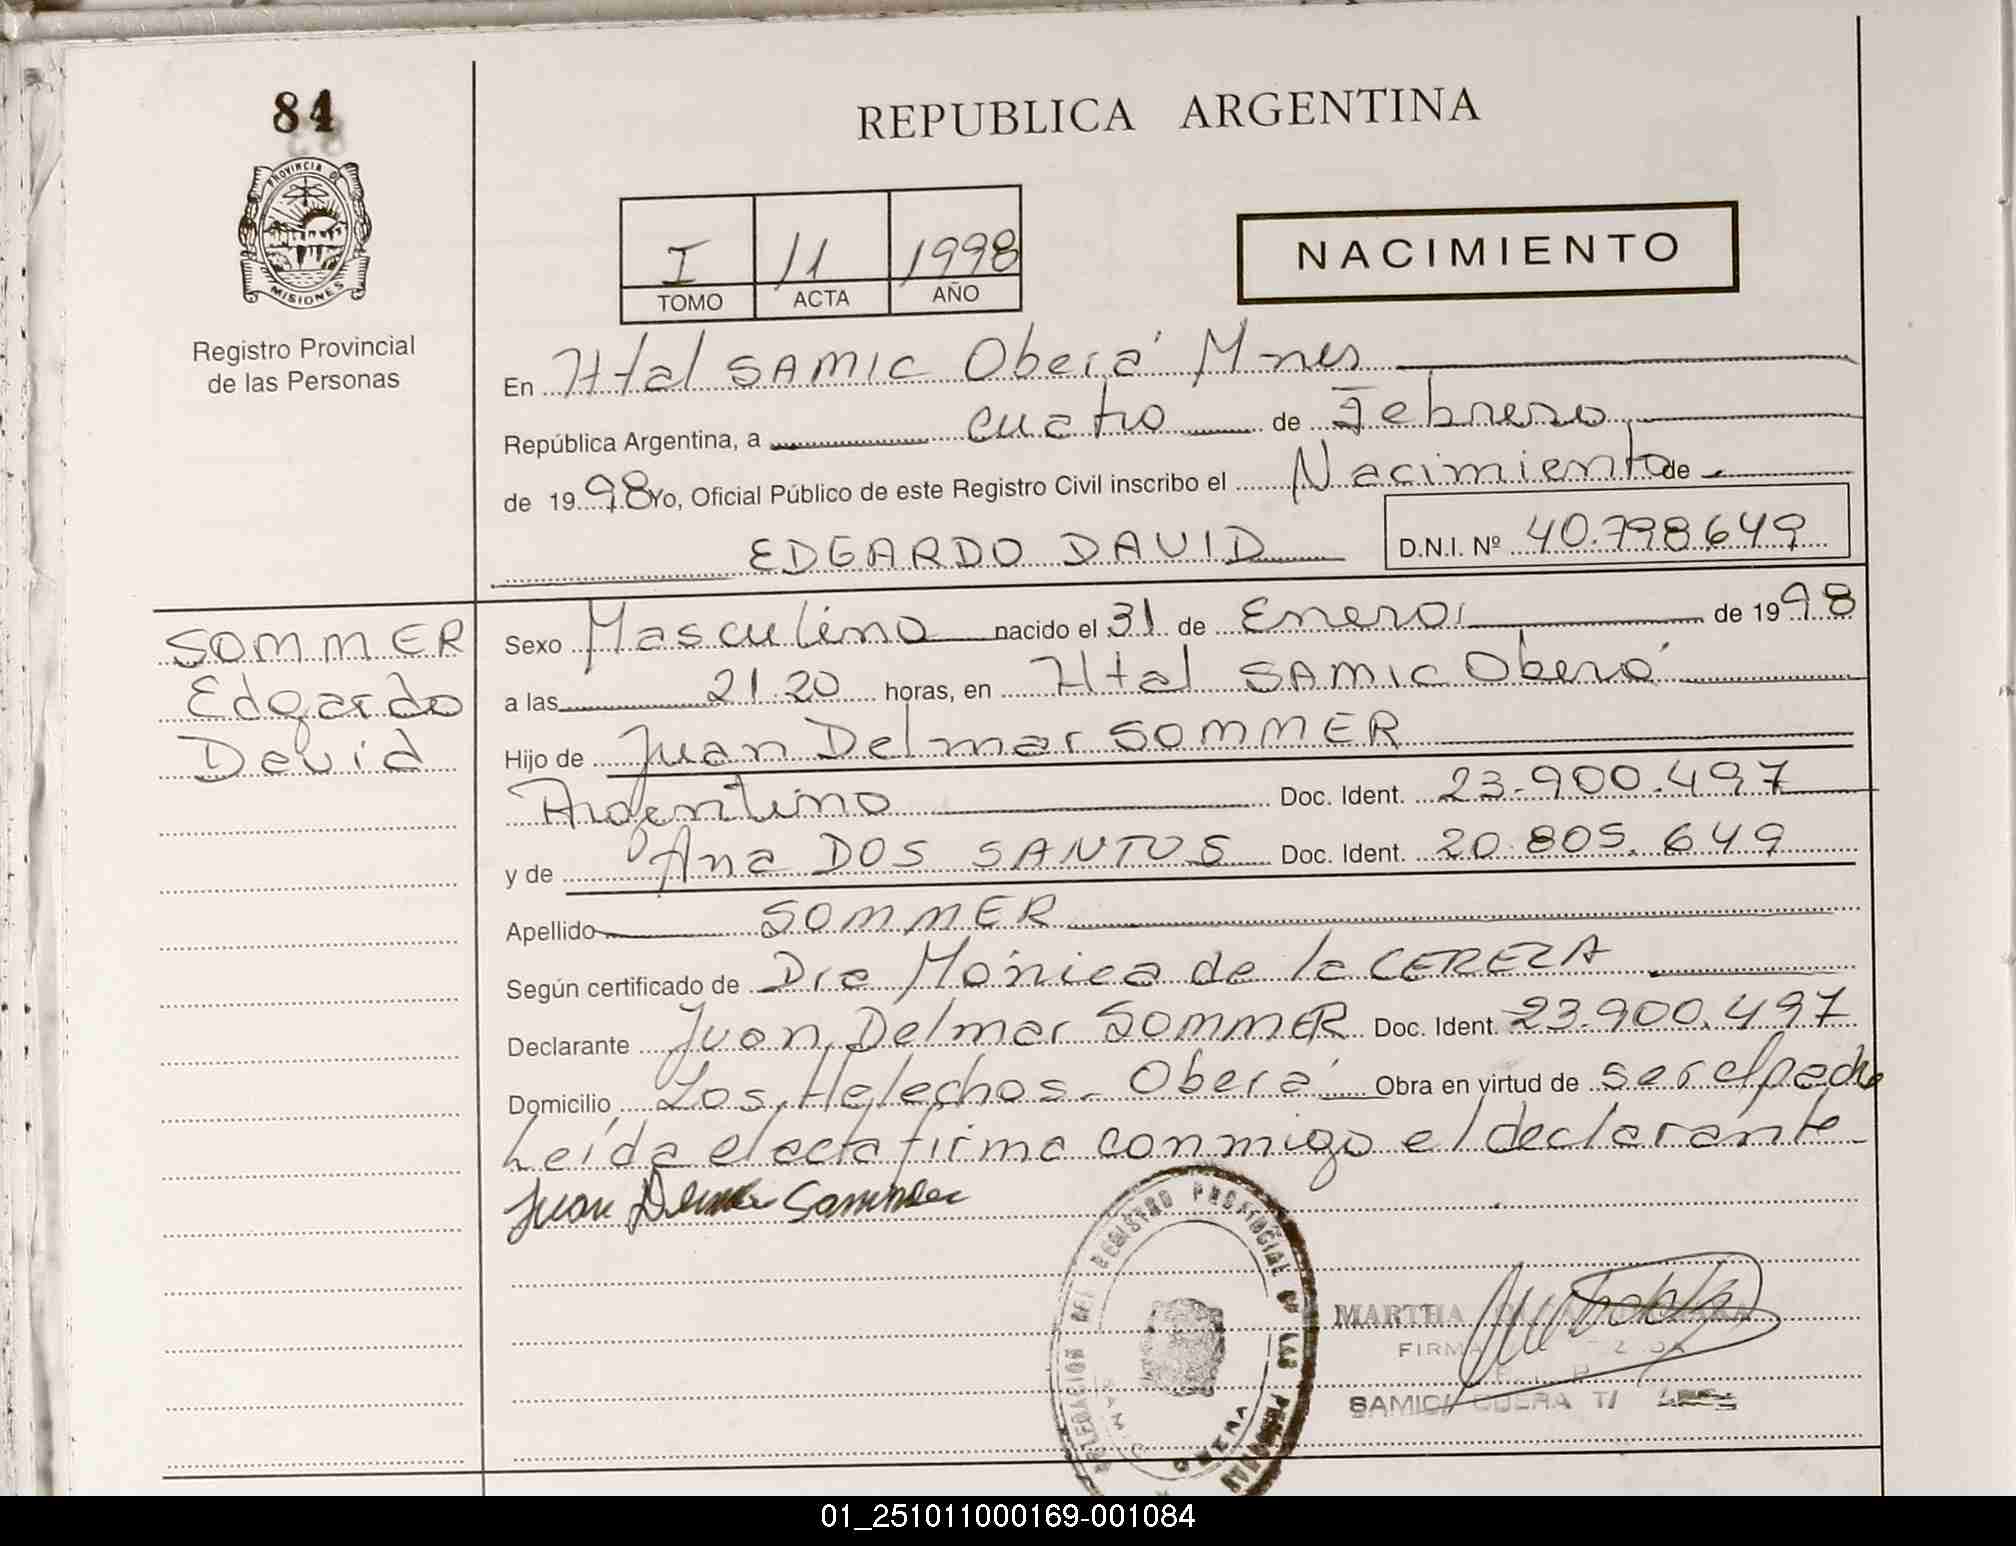 84
REPUBLICA ARGENTINA
PROVINCIA DE
MISIONES
Registro Provincial
de las Personas
I 11 1998
TOMO ACTA AÑO
NACIMIENTO
En Htal SAMIC Oberá Mnes
República Argentina, a cuatro de Febrero
de 1998 Yo, Oficial Público de este Registro Civil inscribo el Nacimiento de
EDGARDO DAVID D.N.I. Nº 40.798.649
SOMMER
Edgardo
David
Sexo Masculino nacido el 31 de Enero de 1998
a las 21.20 horas, en Htal SAMIC Oberá
Hijo de Juan Delmar SOMMER
Argentino Doc. Ident. 23.900.497
y de Ana DOS SANTOS Doc. Ident. 20.805.649
Apellido SOMMER
Según certificado de Dra Mónica de la CEREZA
Declarante Juan Delmar SOMMER Doc. Ident. 23.900.497
Domicilio Los Helechos - Oberá Obra en virtud de ser el padre
Leída el acta firma conmigo el declarante
Juan Delmar Sommer
DELEGACION DEL REGISTRO PROVINCIAL DE LAS PERSONAS
SAMIC
OBERA
MARTHA
FIRMA
SAMIC OBERA
01_251011000169-001084